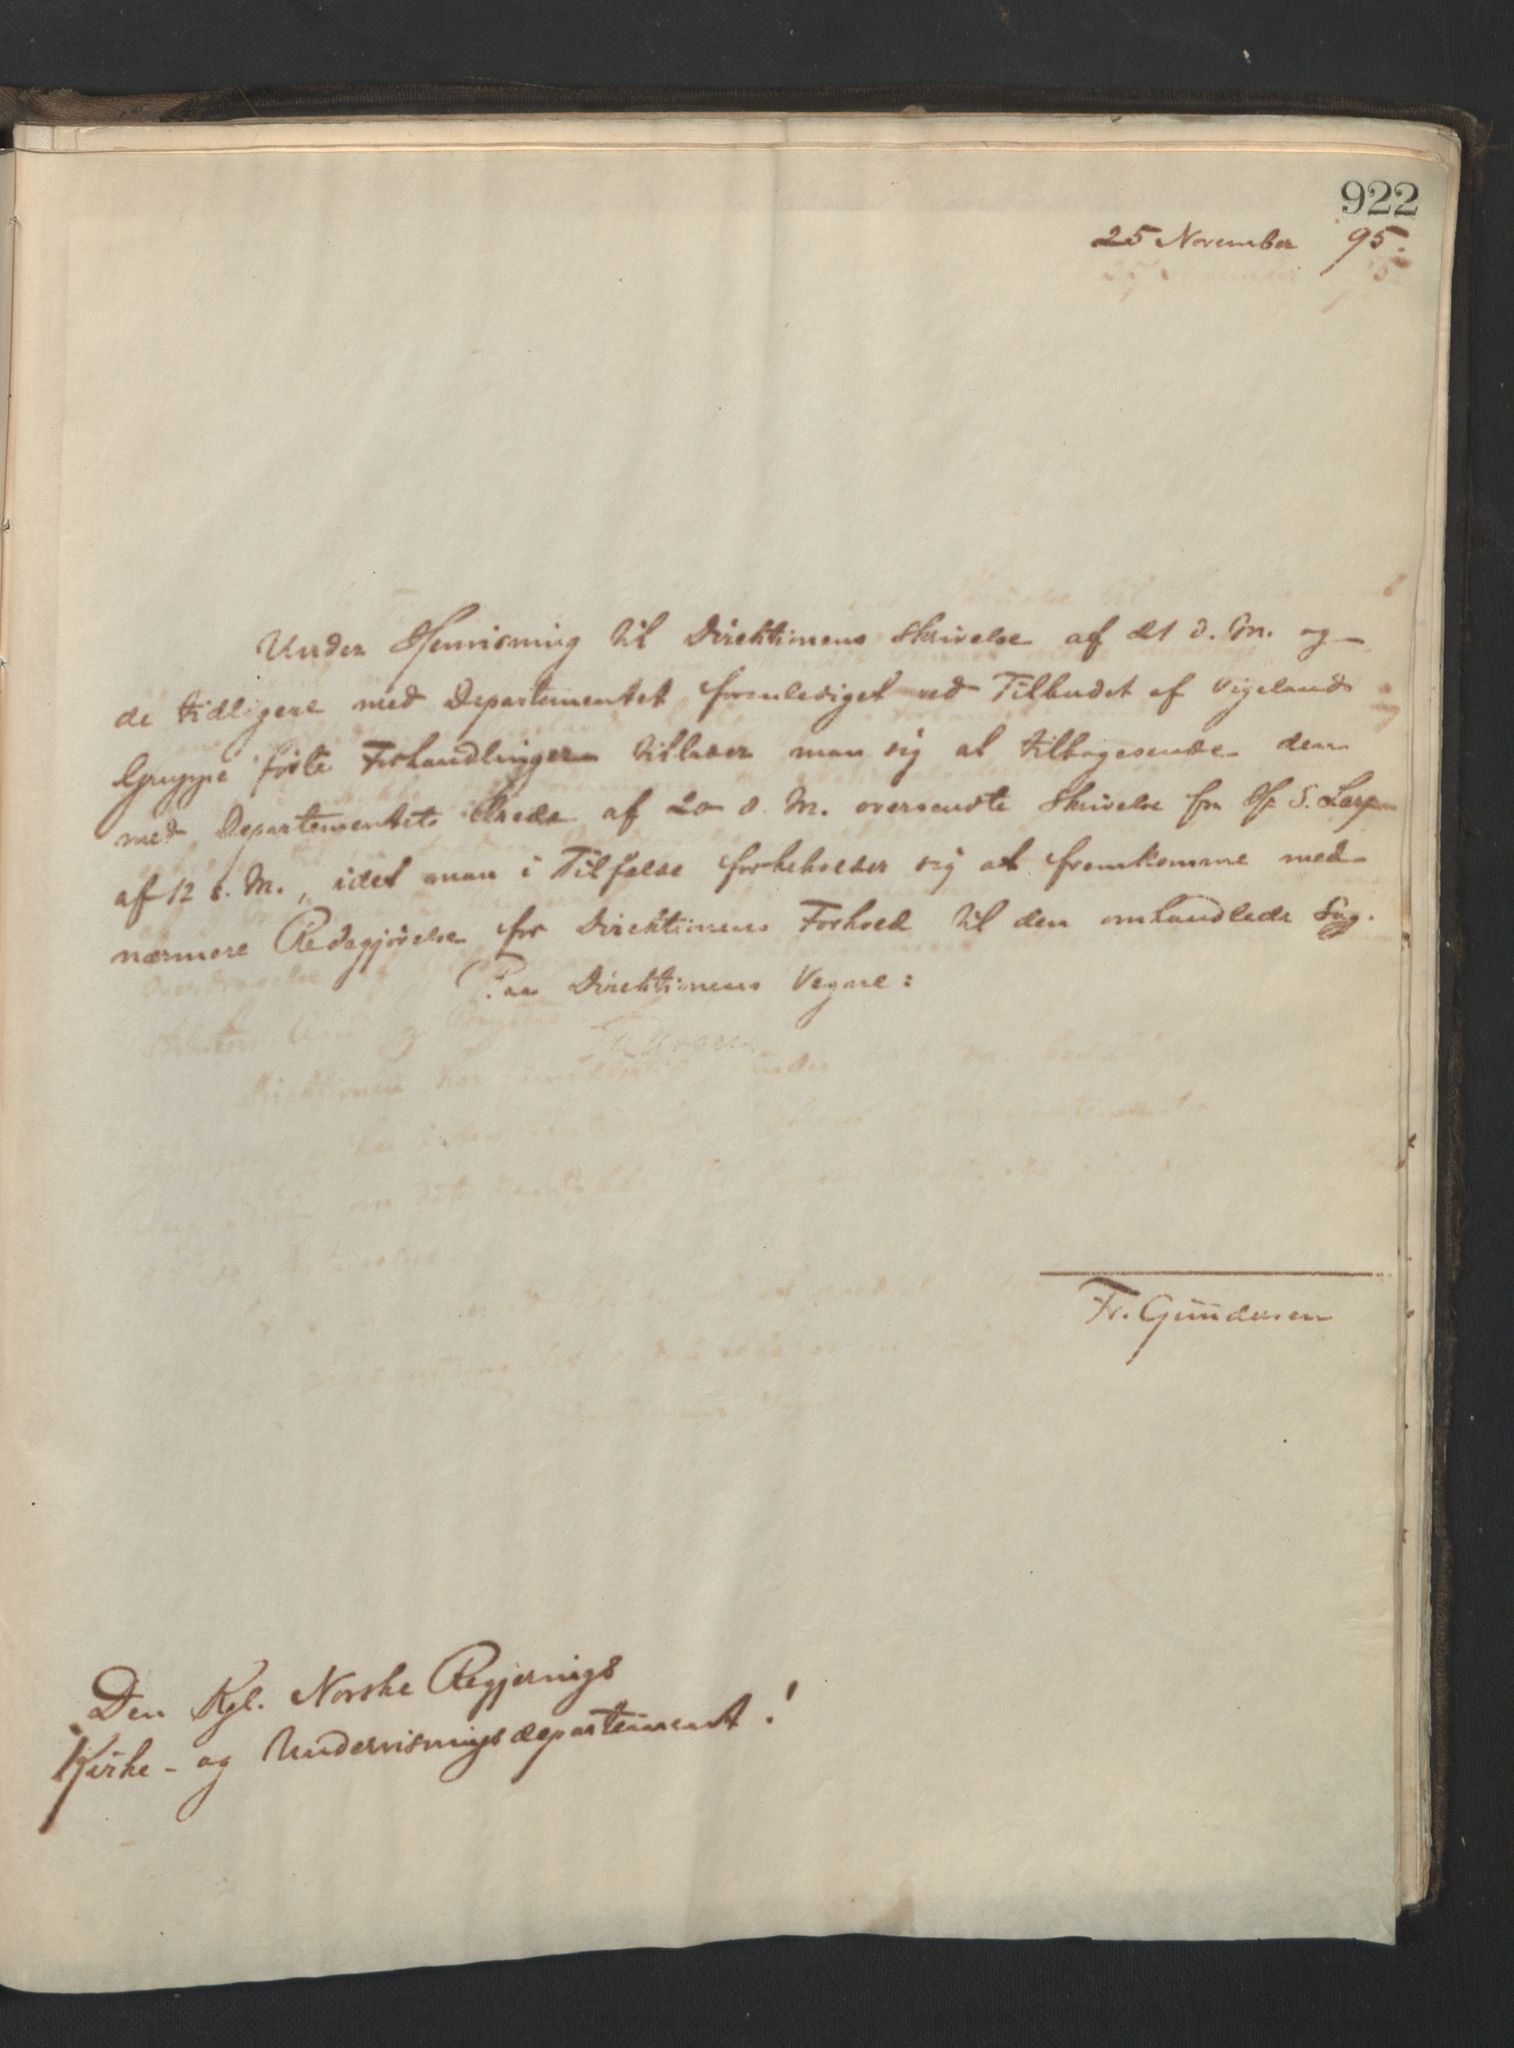 922
25 November 95.
Under Henvisning til Direktionens Skrivelse af 21 d. M. og
de tidligere med Departementet foranlediget ved Tilbudet af Vigelands
Gruppe førte Forhandlinger tillader man sig at tilbagesende den
med Departementets Brede af 20 d. M. oversendte Skrivelse fra Hr S.
af 12 s. M., idet man i Tilfælde forbeholder sig at fremkomme med
nærmere Redegjørelse for Direktionens Forhold til den omhandlede Sag.
Paa Direktionens Vegne:
Fr. Gundersen
Den Kgl. Norske Regjerings
Kirke- og Undervisningsdepartement!